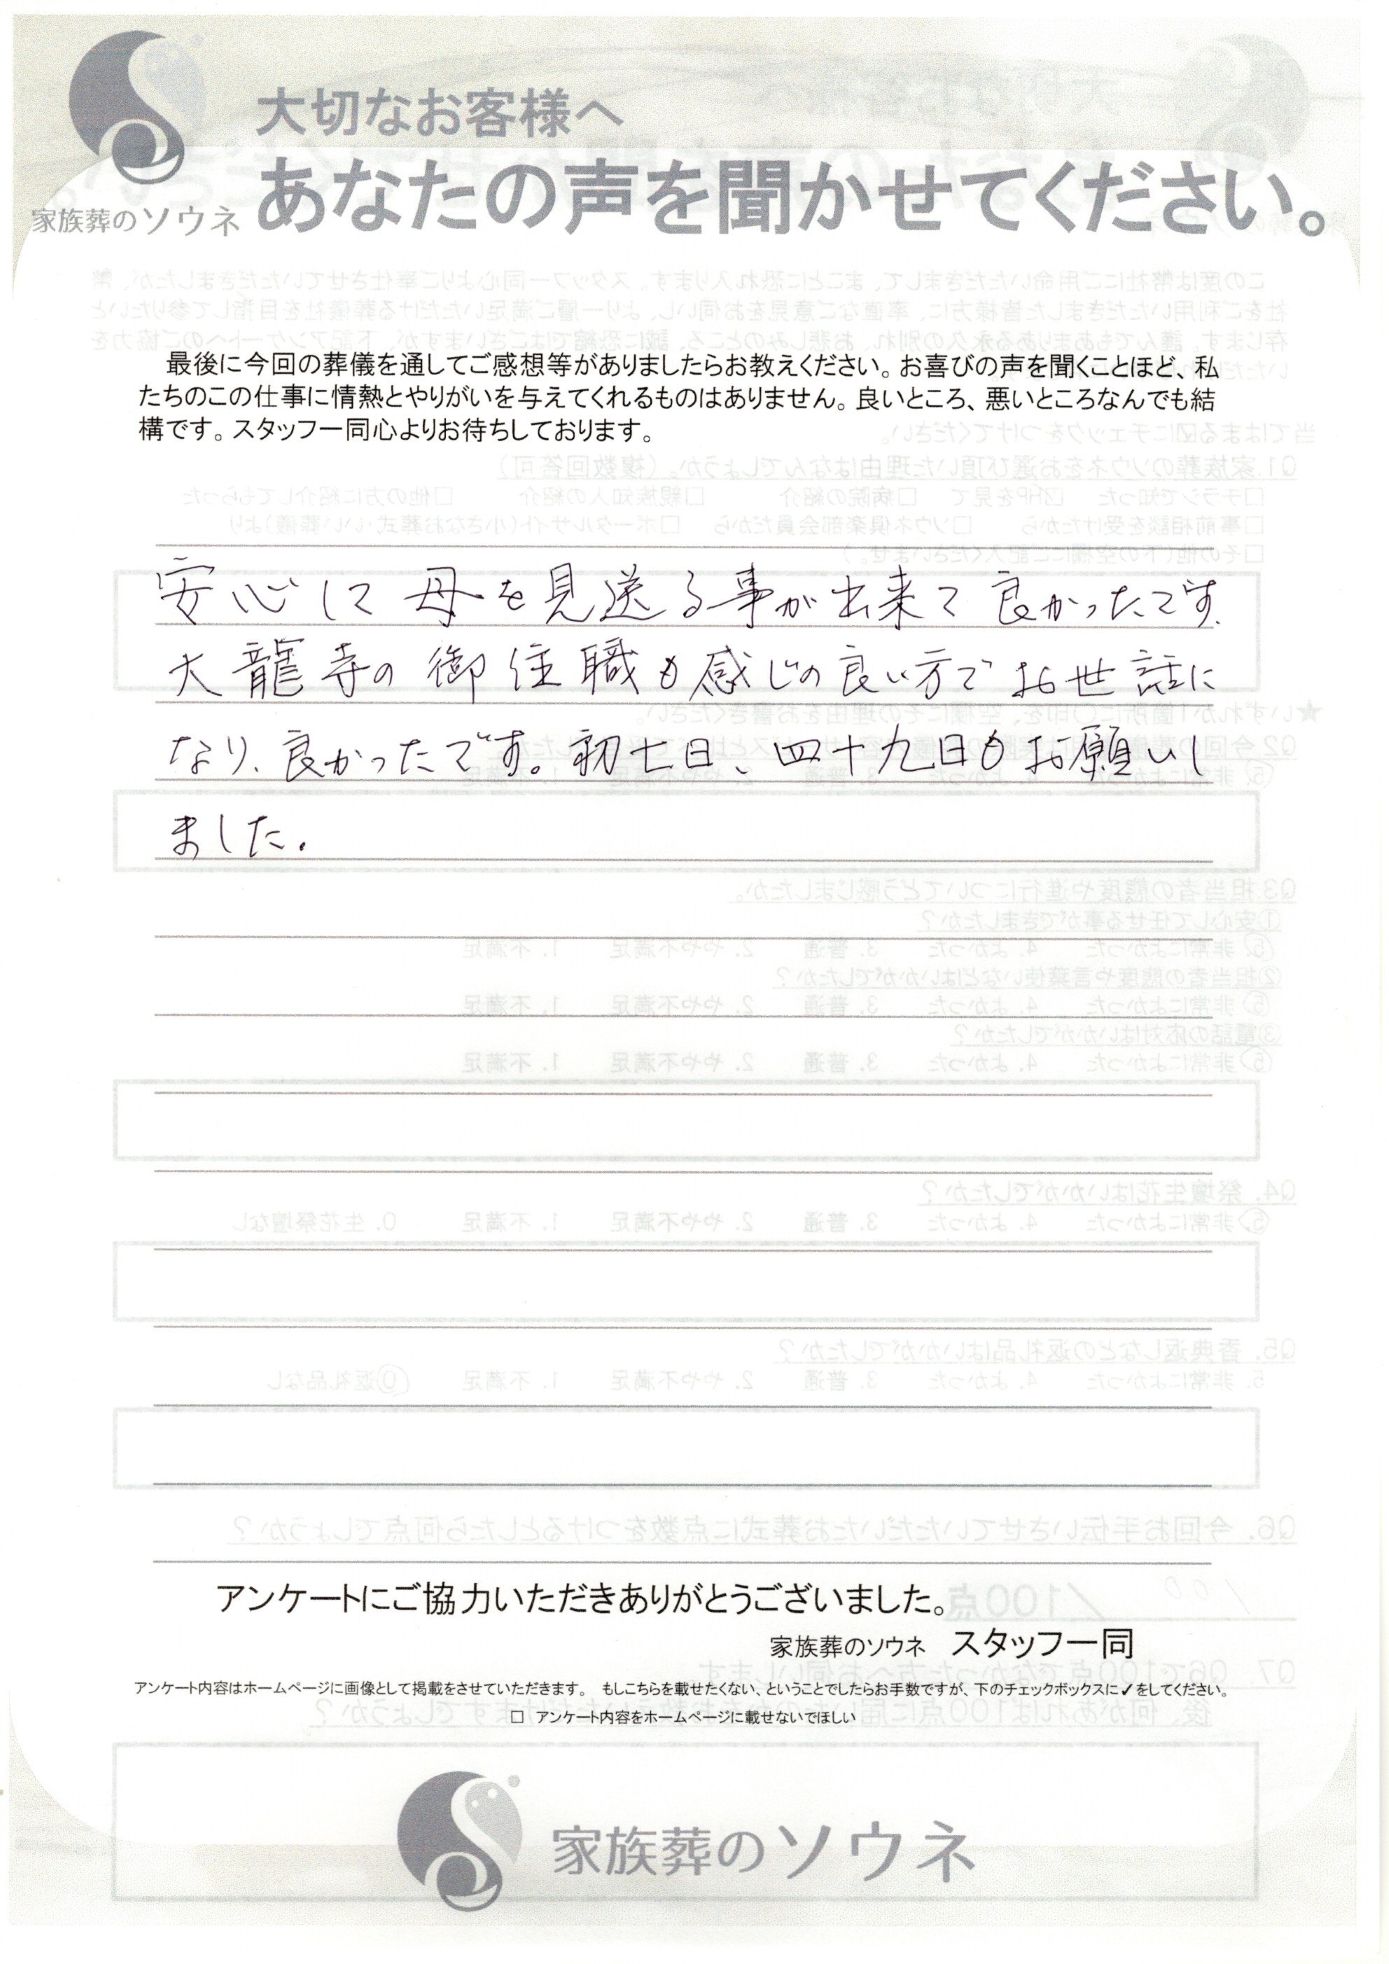 大切なお客様へ
あなたの声を聞かせてください。
家族葬のソウネ
最後に今回の葬儀を通してご感想等がありましたらお教えください。お喜びの声を聞くことほど、私
たちのこの仕事に情熱とやりがいを与えてくれるものはありません。良いところ、悪いところなんでも結
構です。スタッフ一同心よりお待ちしております。
安心して母を見送る事が出来て良かったです、
大龍寺の御住職も感じの良い方でお世話に
なり、良かったです。初七日、四十九日もお願いし
ました。
アンケートにご協力いただきありがとうございました。
家族葬のソウネ スタッフ一同
アンケート内容はホームページに画像として掲載をさせていただきます。 もしこちらを載せたくない、ということでしたらお手数ですが、下のチェックボックスに✓をしてください。
□ アンケート内容をホームページに載せないでほしい
家族葬のソウネ